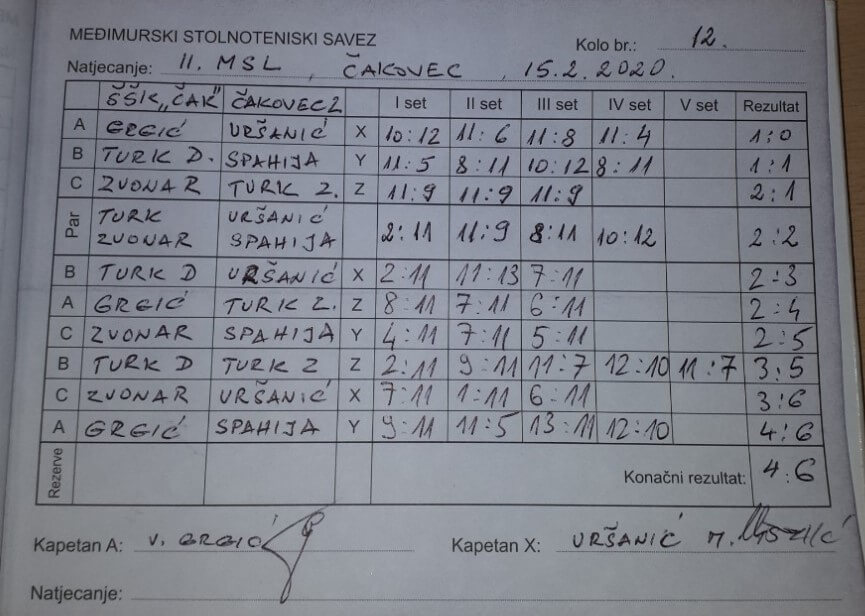 MEĐIMURSKI STOLNOTENISKI SAVEZ
Kolo br.: 12.
Natjecanje: II. MSL, ČAKOVEC, 15.2.2020.
ŠŠK "ČAK" ČAKOVEC 2 I set II set III set IV set V set Rezultat
A GRGIĆ URŠANIĆ X 10:12 11:6 11:8 11:4 1:0
B TURK D. SPAHIJA Y 11:5 8:11 10:12 8:11 1:1
C ZVONAR TURK Z. Z 11:9 11:9 11:9 2:1
Par TURK URŠANIĆ
ZVONAR SPAHIJA 2:11 11:9 8:11 10:12 2:2
B TURK D URŠANIĆ X 2:11 11:13 7:11 2:3
A GRGIĆ TURK Z. Z 8:11 7:11 6:11 2:4
C ZVONAR SPAHIJA Y 4:11 7:11 5:11 2:5
B TURK D TURK Z Z 2:11 9:11 11:7 12:10 11:7 3:5
C ZVONAR URŠANIĆ X 7:11 1:11 6:11 3:6
A GRGIĆ SPAHIJA Y 9:11 11:5 13:11 12:10 4:6
Rezerve Konačni rezultat: 4:6
Kapetan A: V. GRGIĆ Kapetan X: URŠANIĆ M.
Natjecanje: